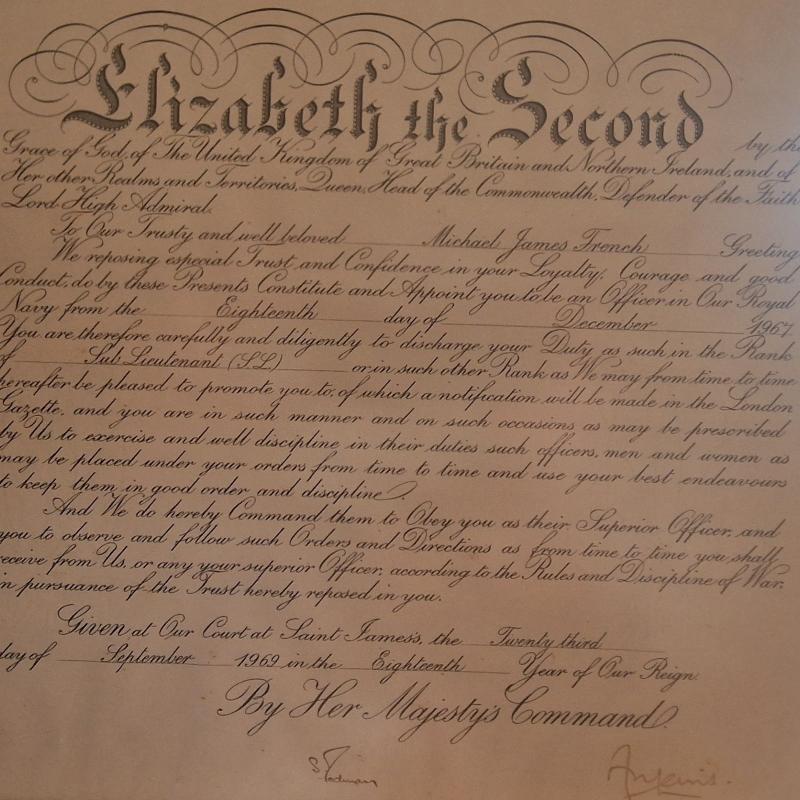 Elizabeth the Second by the
Grace of God, of The United Kingdom of Great Britain and Northern Ireland, and of
Her other Realms and Territories, Queen, Head of the Commonwealth, Defender of the Faith
Lord High Admiral.
To Our Trusty and well beloved Michael James French Greeting
We reposing especial Trust and Confidence in your Loyalty, Courage and good
Conduct, do by these Presents Constitute and Appoint you to be an Officer in Our Royal
Navy from the Eighteenth day of December 1967.
You are therefore carefully and diligently to discharge your Duty as such in the Rank
of Sub Lieutenant (S.L) or in such other Rank as We may from time to time
hereafter be pleased to promote you to, of which a notification will be made in the London
Gazette, and you are in such manner and on such occasions as may be prescribed
by Us to exercise and well discipline in their duties such officers, men and women as
may be placed under your orders from time to time and use your best endeavours
to keep them in good order and discipline.
And We do hereby Command them to Obey you as their Superior Officer, and
you to observe and follow such Orders and Directions as from time to time you shall
receive from Us, or any your superior Officer, according to the Rules and Discipline of War,
in pursuance of the Trust hereby reposed in you.
Given at Our Court at Saint James's, the Twenty third
day of September 1969 in the Eighteenth Year of Our Reign.
By Her Majesty's Command.